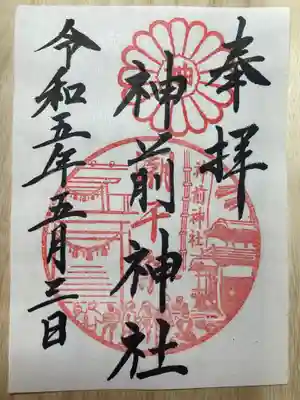 奉拝
神
神前神社
神前神社
令和五年五月三日